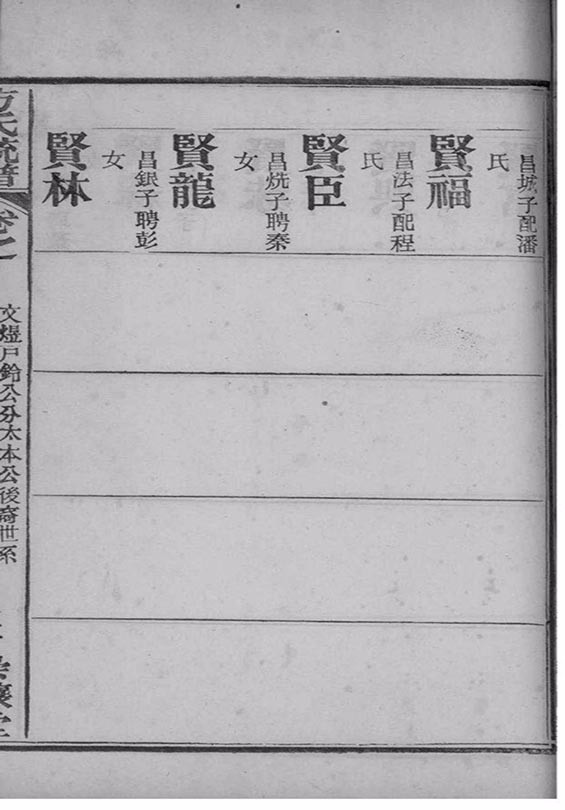 賢福
昌城子配潘
氏
賢臣
昌法子配程
氏
賢龍
昌烍子聘秦
女
賢林
昌銀子聘彭
女
方氏統譜
卷之
文煜戶鈴公分太本公後裔世系